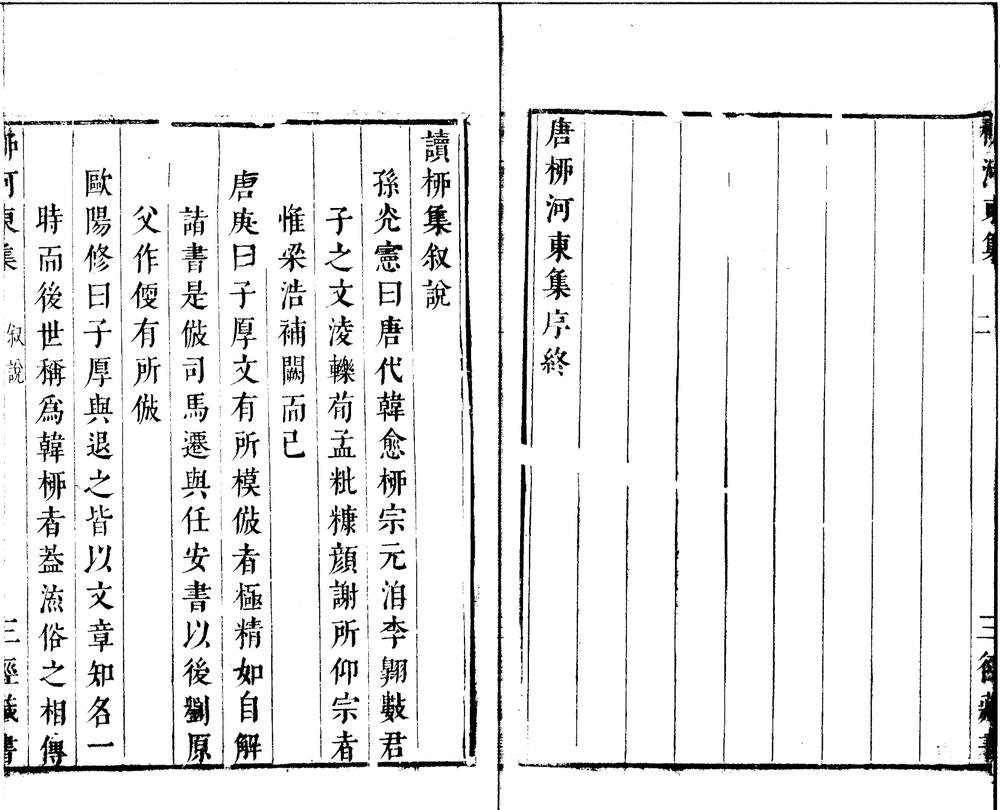 柳河東集 二 三徑藏書
唐栁河東集序終
讀栁集叙說
孫光憲曰唐代韓愈栁宗元洎李翺數君
子之文淩轢荀孟粃糠顔謝所仰宗者
惟梁浩補闕而已
唐庚曰子厚文有所模倣者極精如自解
諸書是倣司馬遷與任安書以後劉原
父作便有所倣
歐陽修曰子厚與退之皆以文章知名一
時而後世稱爲韓栁者葢流俗之相傳
栁河東集 叙說 三徑藏書